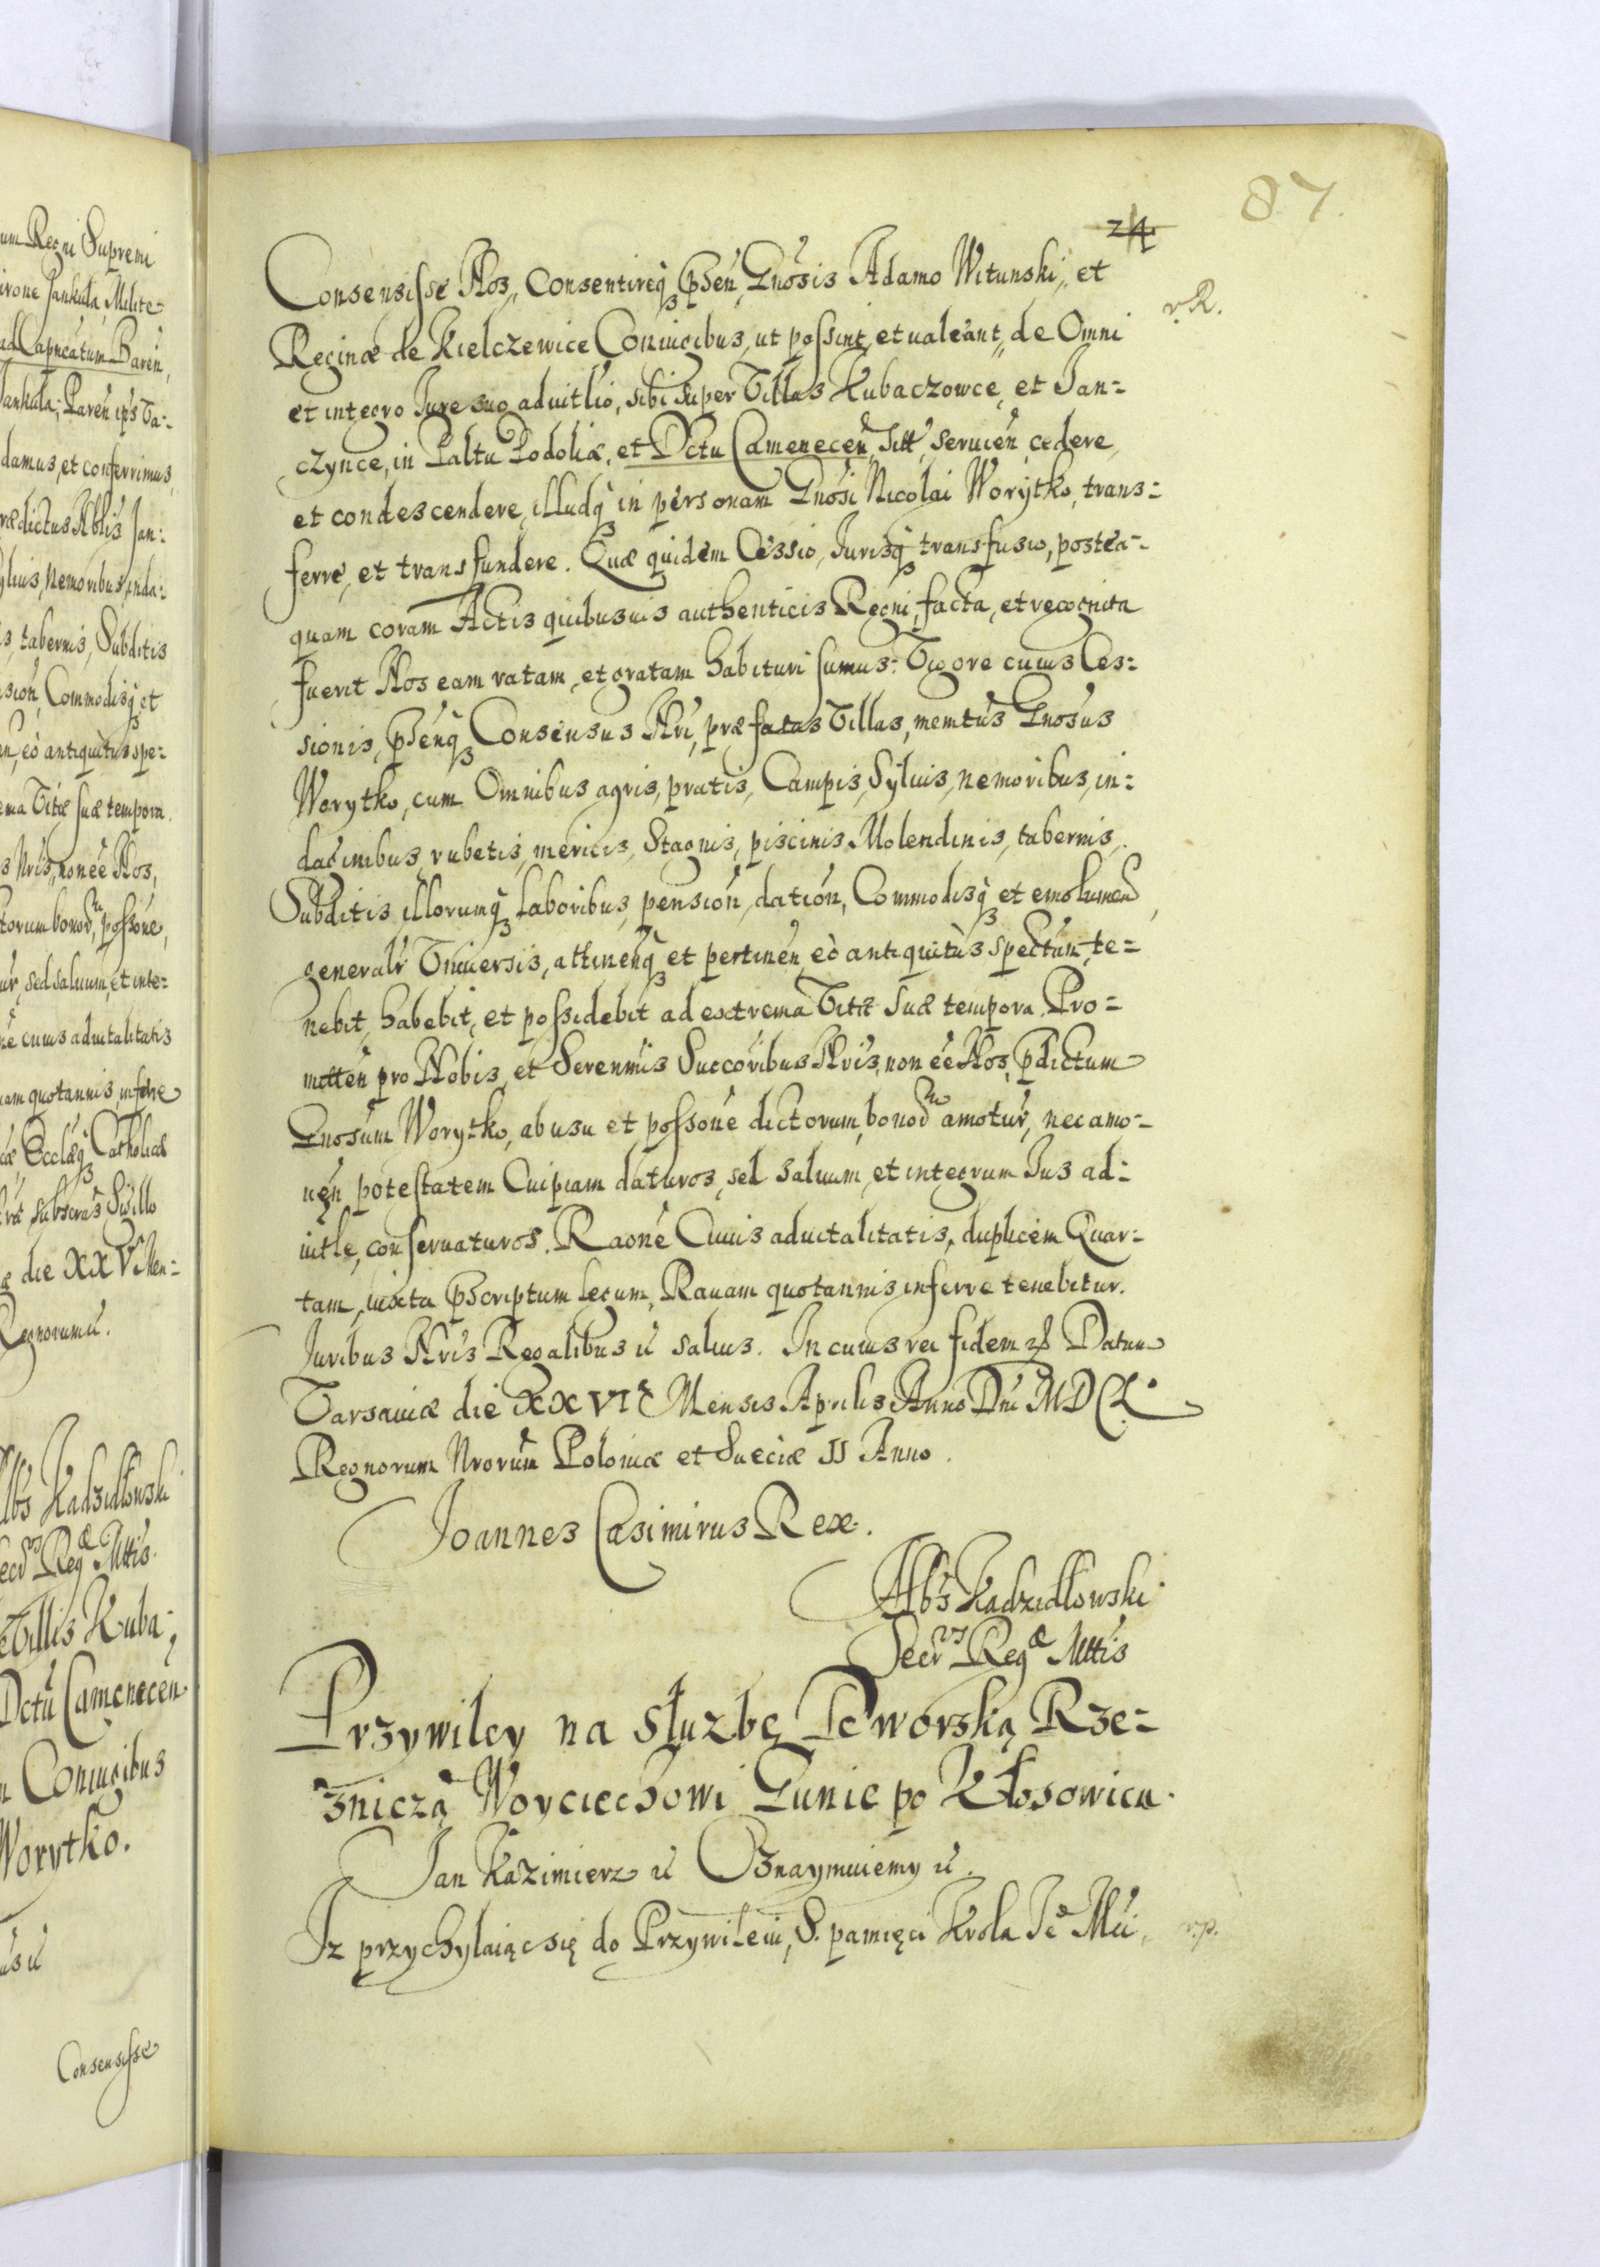 um Regni Supremi
irone Jankula, Milite
ad Capneatum Baren,
Jankula, Paren ips Va-
damus, et conferrimus,
rædictus Nblis Jan-
ylvis, Nemoribus, inda-
s, tabernis, Subditis
sion, Commodisq3 et
en, eò antiquitus spe-
ema Vitæ suæ tempora.
s Nris, non ee Nos,
torum bonor, possone,
ur, sed saluum, et inte-
ne cuius aduitalitatis
uam quotannis inferre
æ Ecclæq3 Catholicæ
subscras Sigillo
die XXV Men-
Regnorum ũ.
Albs Kadzidłowski
Secr Regæ Mttis.
Villis Kuba-
Dctu Camenecen
Coniugibus
Worytko.
Consensisse
87.
24
Consensisse Nos, Consentireq3 Pñsen, Gnosis Adamo Witunski, et
v. R.
Reginæ de Kielczewice Coniugibus, ut possint, et ualeant, de Omni
et integro Jure suo aduitlio, sibi super Villas Kubaczowce, et Jan-
czynce, in Paltu Podoliæ, et Dctu Camenecen, Sitt, seruien, cedere,
et condescendere, illudq3 in personam Gnosi Nicolai Worytko, trans-
ferre, et transfundere. Quæ quidem Cessio, Jurisq3 transfusio, postea-
quam coram Actis quibusuis authenticis Regni, facta, et recognita
fuerit Nos eam ratam, et gratam habituri sumus: Vigore cuius Ces-
sionis, pñsenq3 Consensus Nri, præfatas Villas, memtus Gnosus
Worytko, cum Omnibus agris, pratis, Campis, Syluis, nemoribus, in-
daginibus, rubetis, mericis, Stagnis, piscinis, Molendinis, tabernis,
Subditis, illorumq3 laboribus, pension, dation, Commodisq3 et emolumen,
generalr Vniuersis, attinenq3 et pertinen, eò antiquitus spectan, te-
nebit, habebit, et possidebit ad extrema Vitæ suæ tempora. Pro-
mitten pro Nobis, et Serenmis Succoribus Nris, non ee Nos, pdictum
Gnosum Worytko, ab usu et possone dictorum, bonor amotur, nec amo-
uen potestatem Cuipiam daturos, sed saluum, et integrum Jus ad-
uitle, conseruaturos. Raone Cuius aduitalitatis, duplicem Quar-
tam, iuxta pscriptum legum, Rauam quotannis inferre tenebitur.
Juribus Nris Regalibus ũ saluis. In cuius rei fidem Datum
Varsauiæ die XXVI Mensis Aprilis Anno Dni MDCL.
Regnorum Nrorum Poloniæ et Sueciæ II Anno.
Joannes Casimirus Rex.
Albs Kadzidłowski
Secrus Regæ Mttis
Przywiley na słuzbę Dworską Rze-
zniczą Woyciechowi Gunie po Kłosowicu.
Jan Kazimierz ũ Oznaymuiemy ũ.
Iz przychylaiąc się do Przywileiu, S. pamięci Krola Je Mci,
v.p.